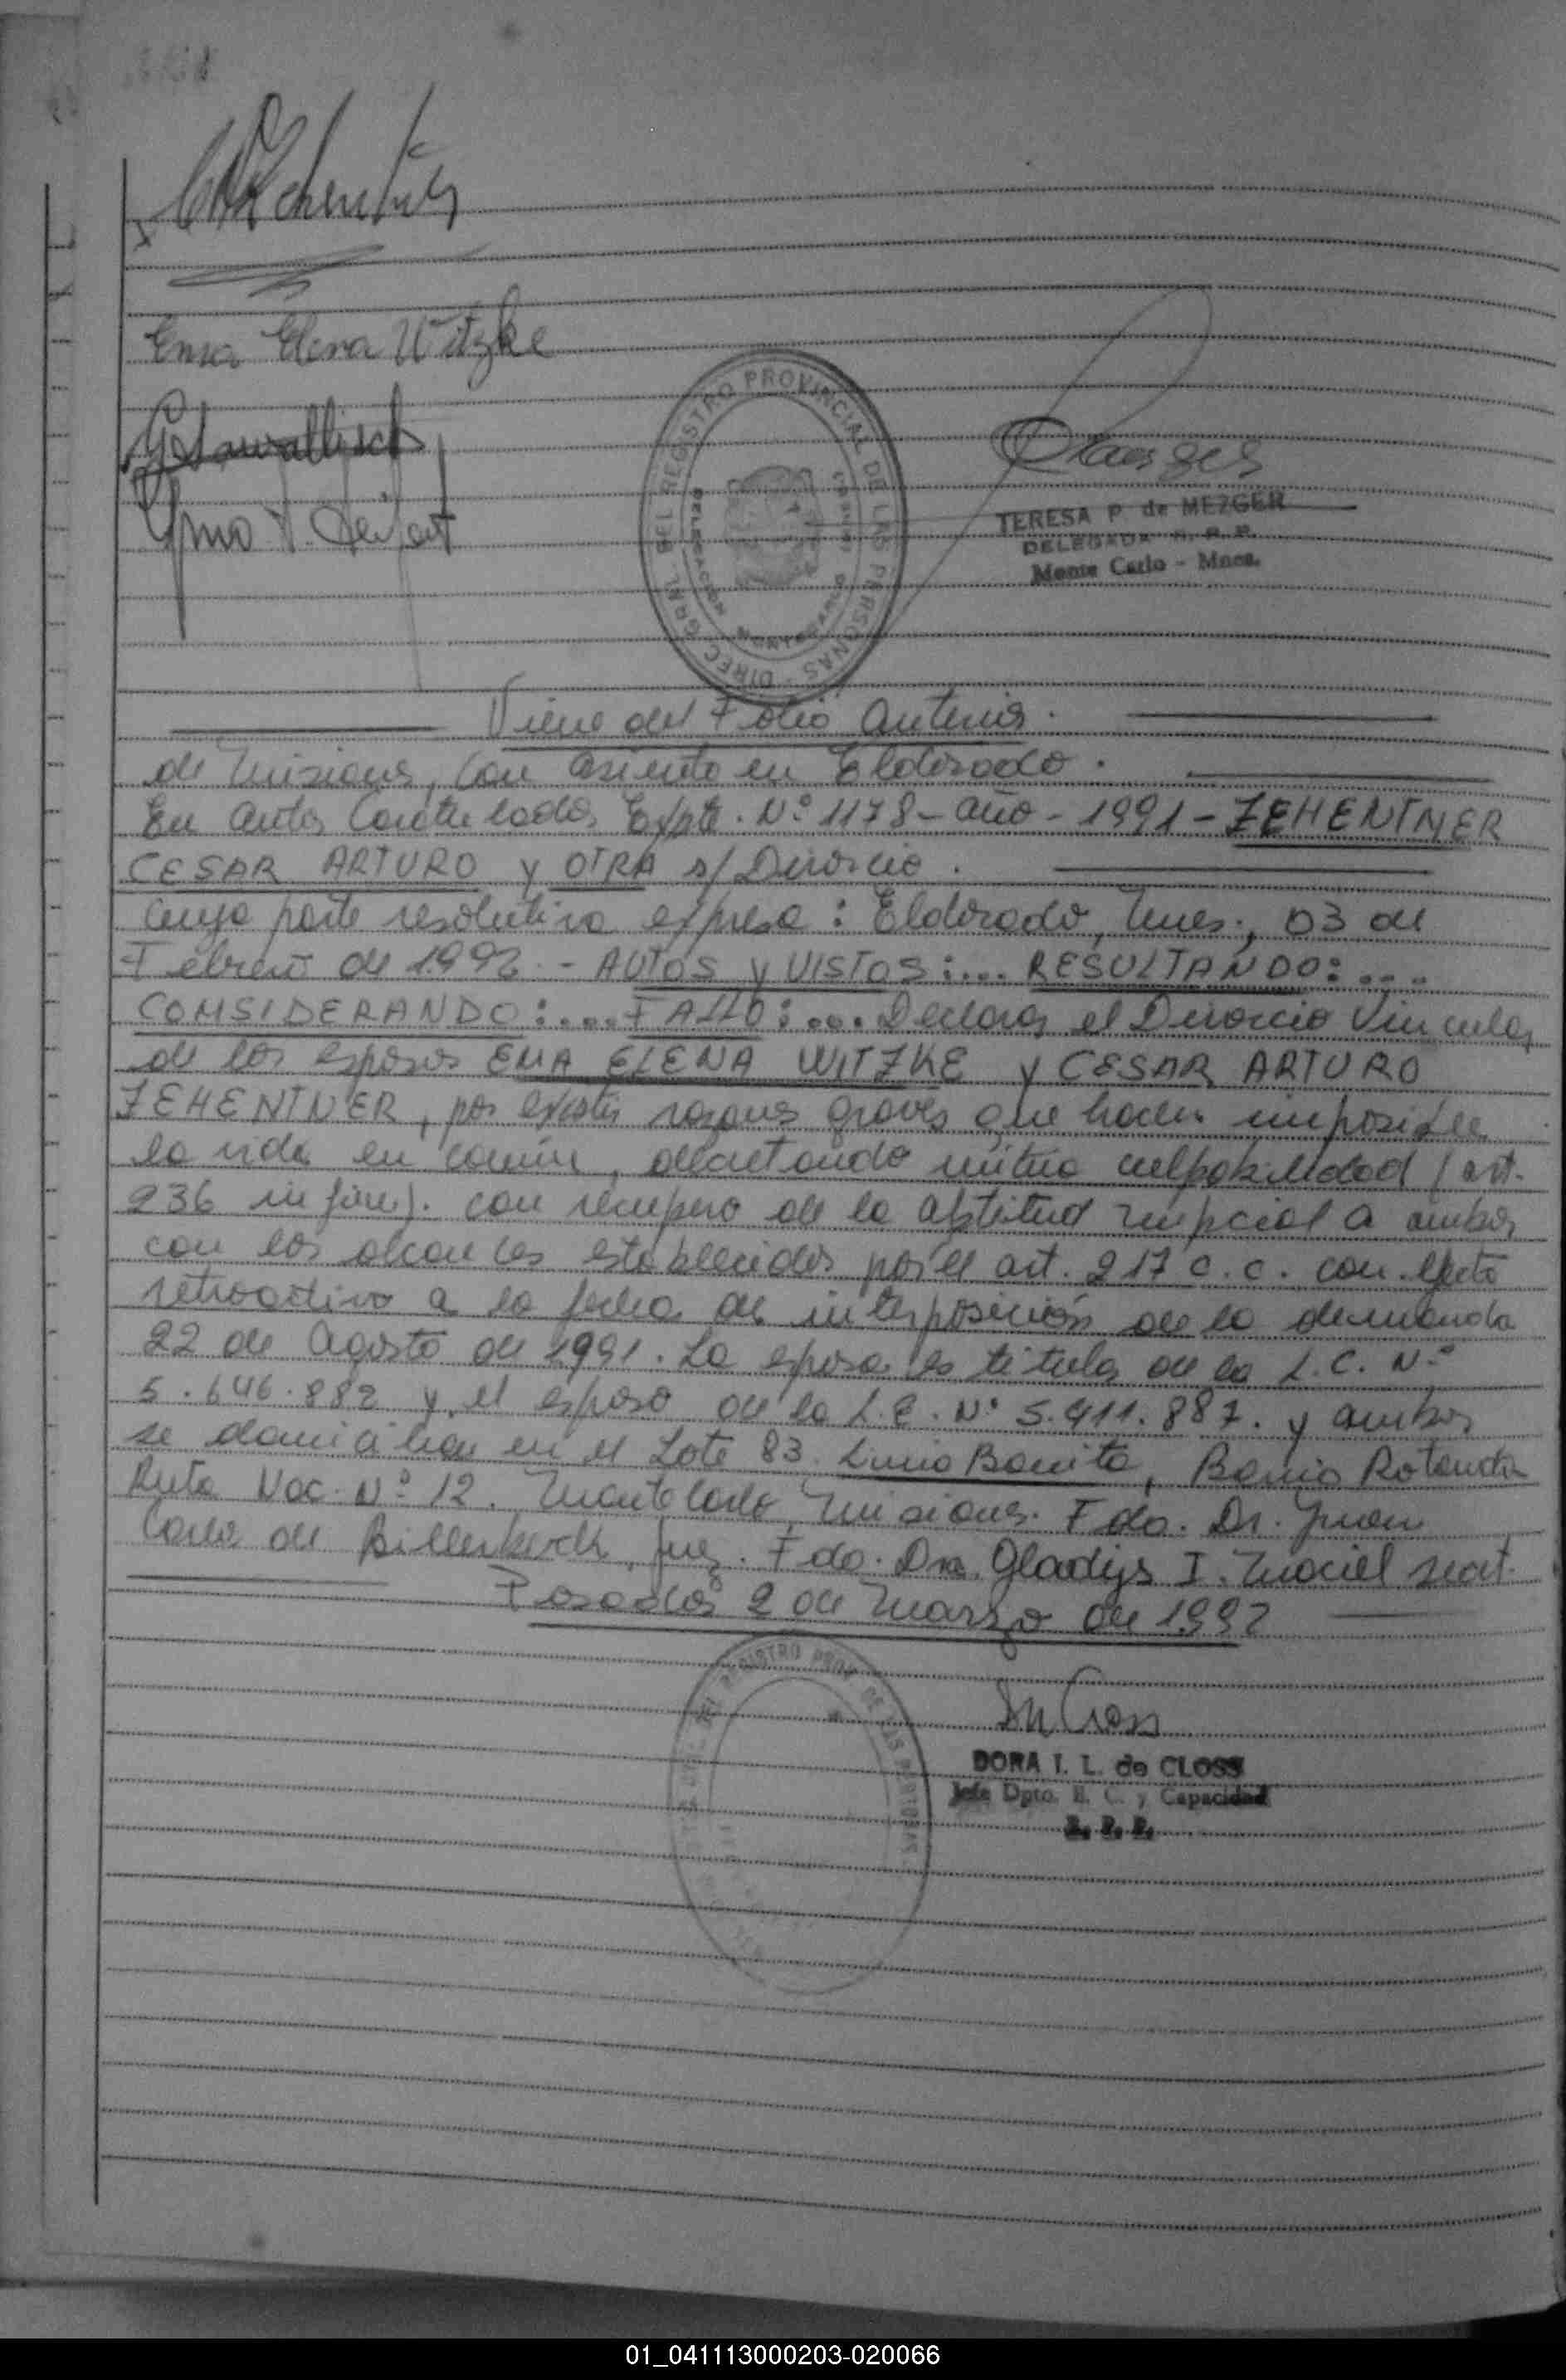 Ema Elena Witzke
DIREC. GRAL. DEL REGISTRO PROVINCIAL DE LAS PERSONAS
TERESA P. de MEZGER
DELEGADA R. P. P.
Monte Carlo - Mnes.
Viene del Folio Anterior.
de Misiones, con asiento en Eldorado.
En autos Caratulados Expte. N° 1178 - año - 1991 - ZEHENTNER
CESAR ARTURO y OTRA s/ Divorcio.
cuya parte resolutiva expresa: Eldorado, Mnes., 03 de
Febrero de 1992 - AUTOS y VISTOS:... RESULTANDO:....
CONSIDERANDO:... FALLO:... Declarar el Divorcio Vincular
de los esposos EMA ELENA WITZKE y CESAR ARTURO
ZEHENTNER, por existir razones graves que hacen imposible
la vida en común, decretando mútua culpabilidad (art.
236 in fine). con recupero de la aptitud nupcial a ambos
con los alcances establecidos por el art. 217 c.c. con efecto
retroactivo a la fecha de interposición de la demanda
22 de Agosto de 1991. La esposa es titular de la L.C. N°
5.646.882 y el esposo de la L.E. N° 5.411.887. y ambos
se domicilian en el Lote 83. Linea Bonita, Barrio Rotonda
Ruta Nac. N° 12. Montecarlo, Misiones. Fdo. Dr. Juan
Carlos de Juez. Fdo. Dra. Gladys I. Maciel secret.
Posadas 2 de Marzo de 1992
REGISTRO PROV. DE LAS PERSONAS
DORA I. L. de CLOSS
Jefe Dpto. E. C. y Capacidad
R. P. P.
01_041113000203-020066